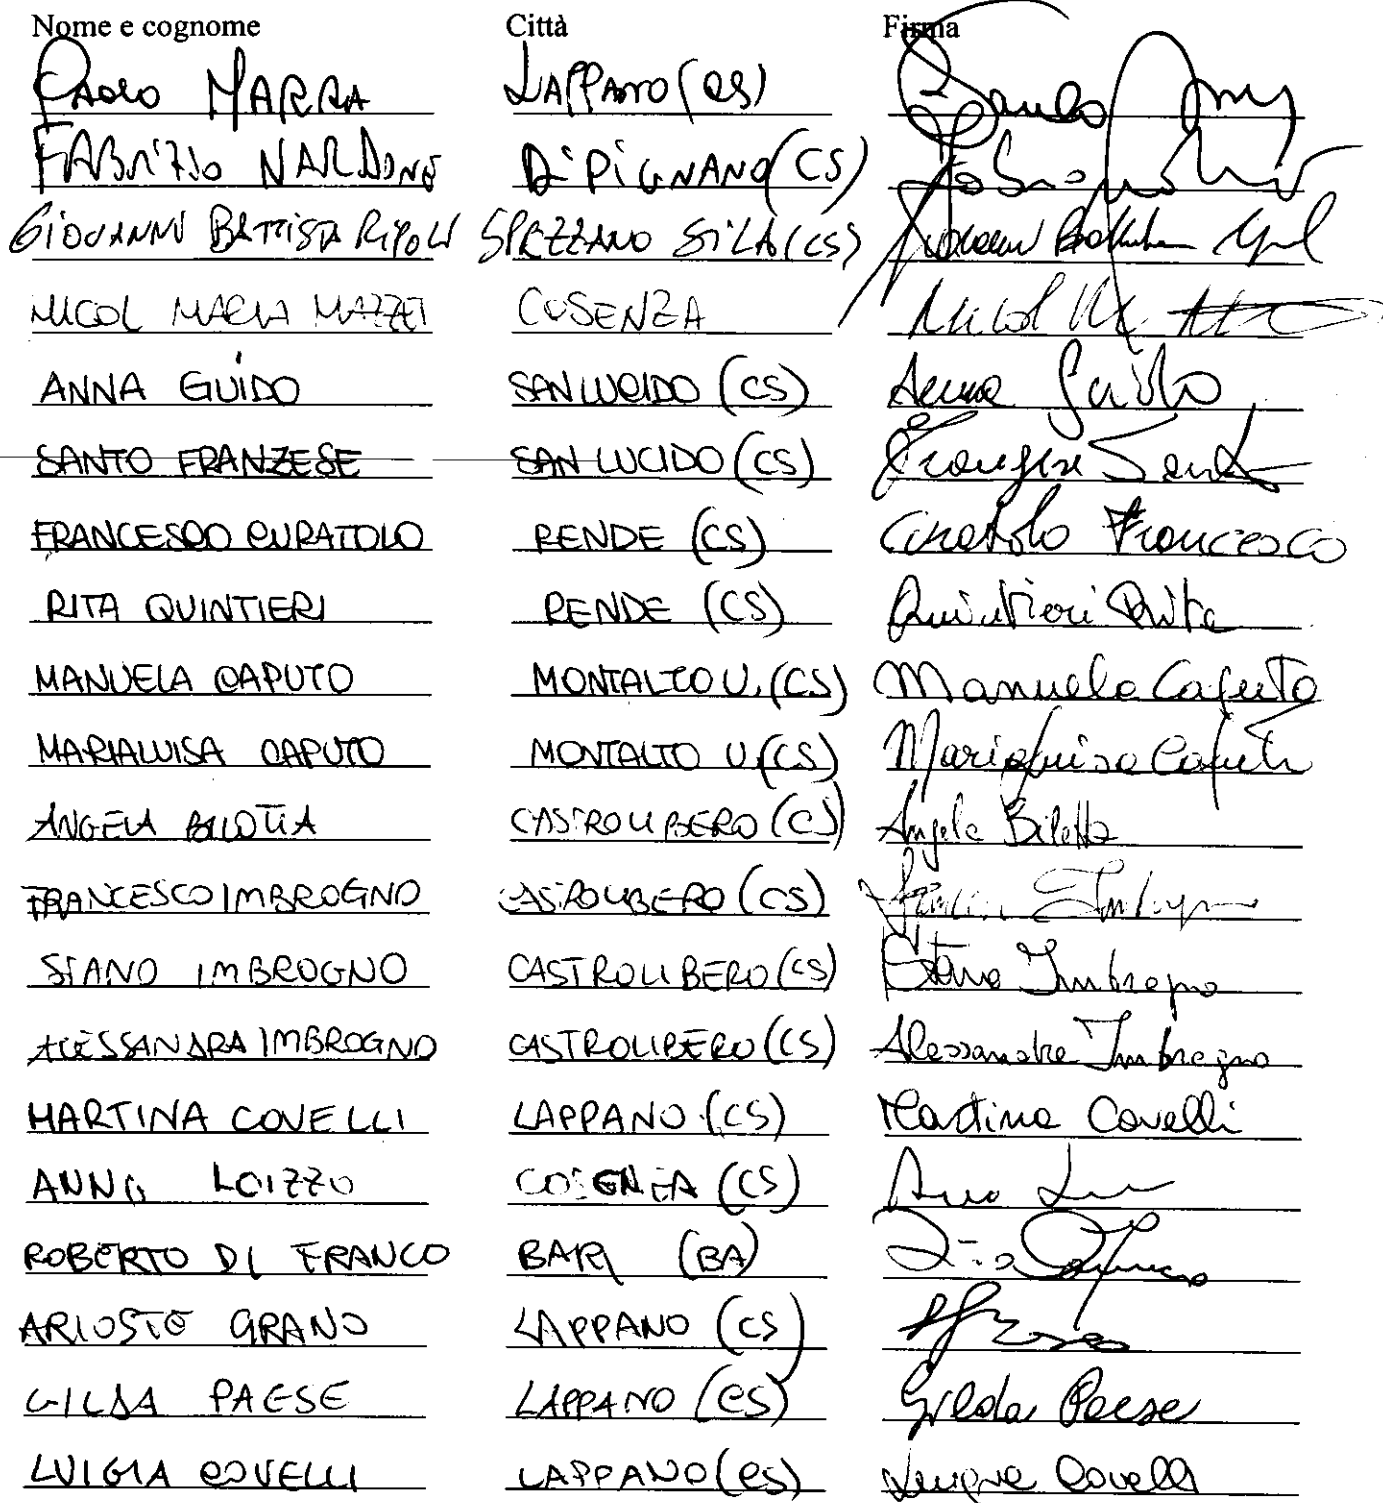 Nome e cognome Città Firma
PAOLO MARRA LAPPANO (CS)
FABRIZIO NARDONE DIPIGNANO (CS)
GIOVANNI BATTISTA RIPOLI SPEZZANO SILA (CS)
NICOL MARIA MAZZEI COSENZA Nicol M
ANNA GUIDO SAN LUCIDO (CS) Anna Guido
SANTO FRANZESE SAN LUCIDO (CS) Franzese Santo
FRANCESCO CURATOLO RENDE (CS) Curatolo Francesco
RITA QUINTIERI RENDE (CS) Quintieri Rita
MANUELA CAPUTO MONTALTO U. (CS) Manuela Caputo
MARIALUISA CAPUTO MONTALTO U. (CS) Marialuisa Caputo
ANGELA BILOTTA CASTROLIBERO (CS) Angela Bilotta
FRANCESCO IMBROGNO CASTROLIBERO (CS)
STANO IMBROGNO CASTROLIBERO (CS) Imbrogno
ALESSANDRA IMBROGNO CASTROLIBERO (CS) Alessandra Imbrogno
MARTINA COVELLI LAPPANO (CS) Martina Covelli
ANNA LOIZZO COSENZA (CS)
ROBERTO DI FRANCO BARI (BA)
ARIOSTO GRANO LAPPANO (CS)
GILDA PAESE LAPPANO (CS) Gilda Paese
LUIGIA COVELLI LAPPANO (CS) Luigia Covelli